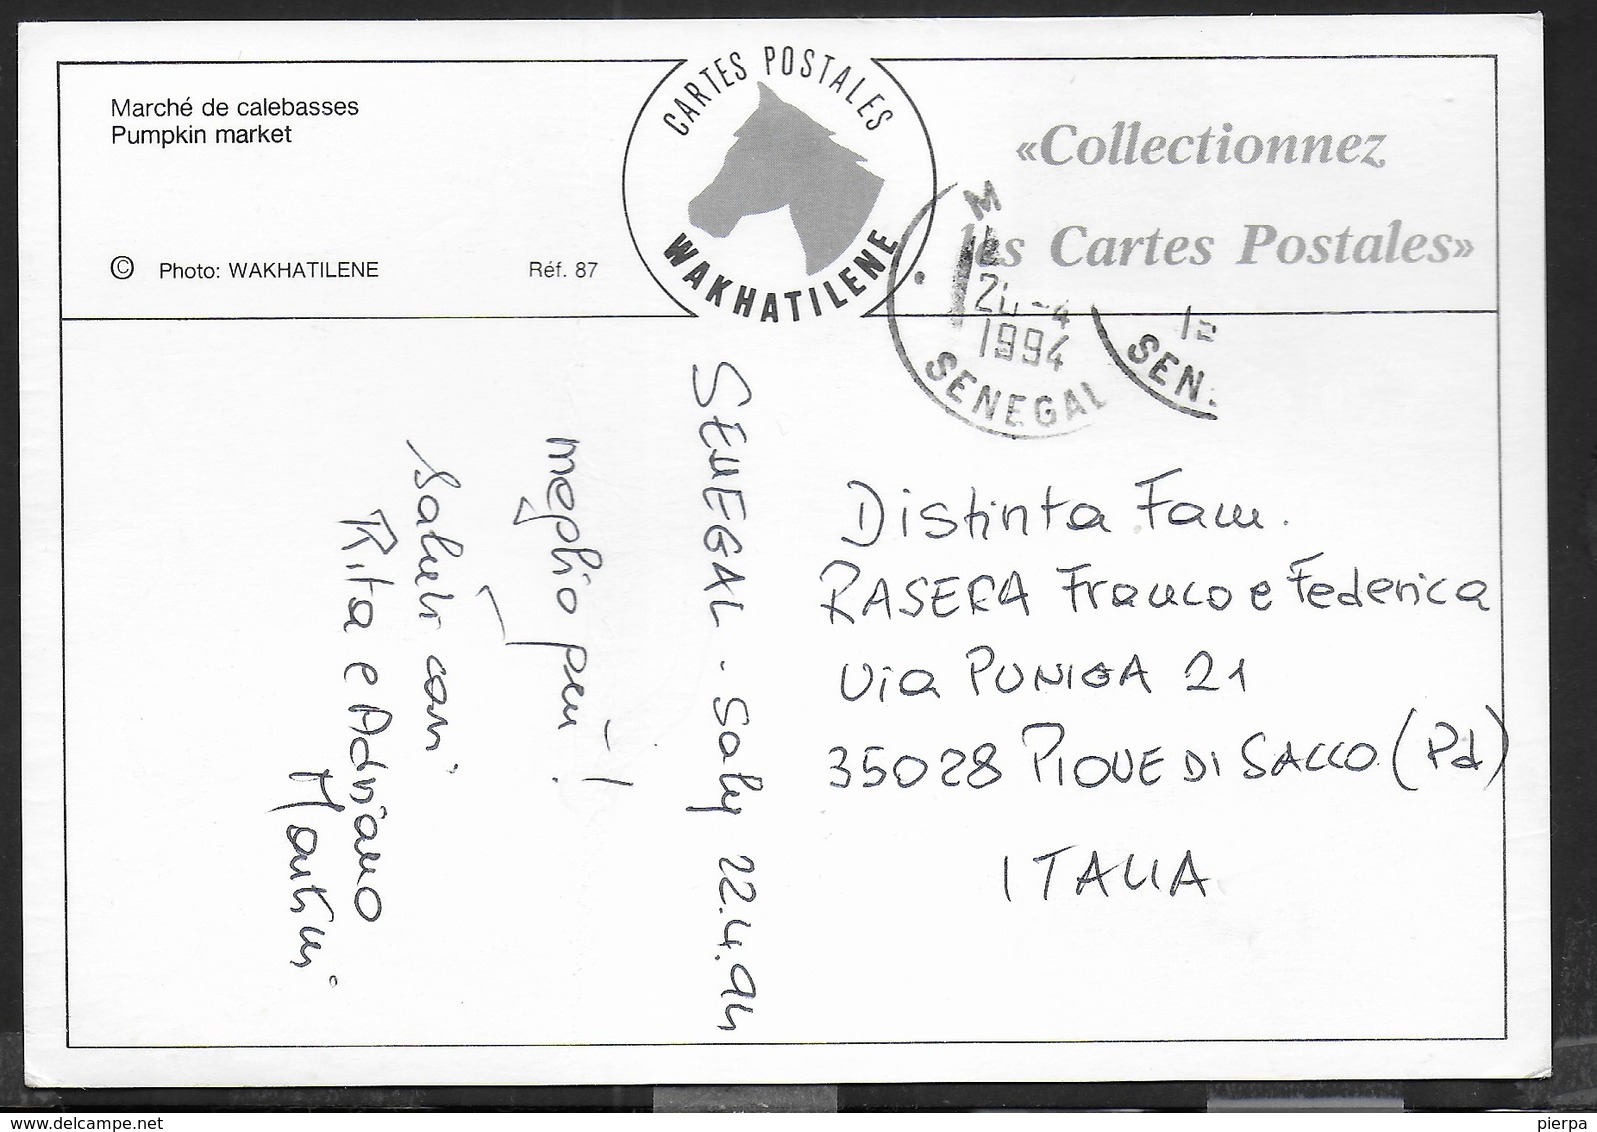 Marché de calebasses
Pumpkin market
© Photo: WAKHATILENE
Réf. 87
CARTES POSTALES
WAKHATILENE
«Collectionnez
les Cartes Postales»
M
1994
SENEGAL
SEN.
SENEGAL - Saly 22.4.94
meglio più!
Saluti cari
Rita e Adriano
Distinta Fam.
RASERA Franco e Federica
Via PUNIGA 21
35028 PIOVE DI SACCO (Pd)
ITALIA
www.delcampe.net
pierpa